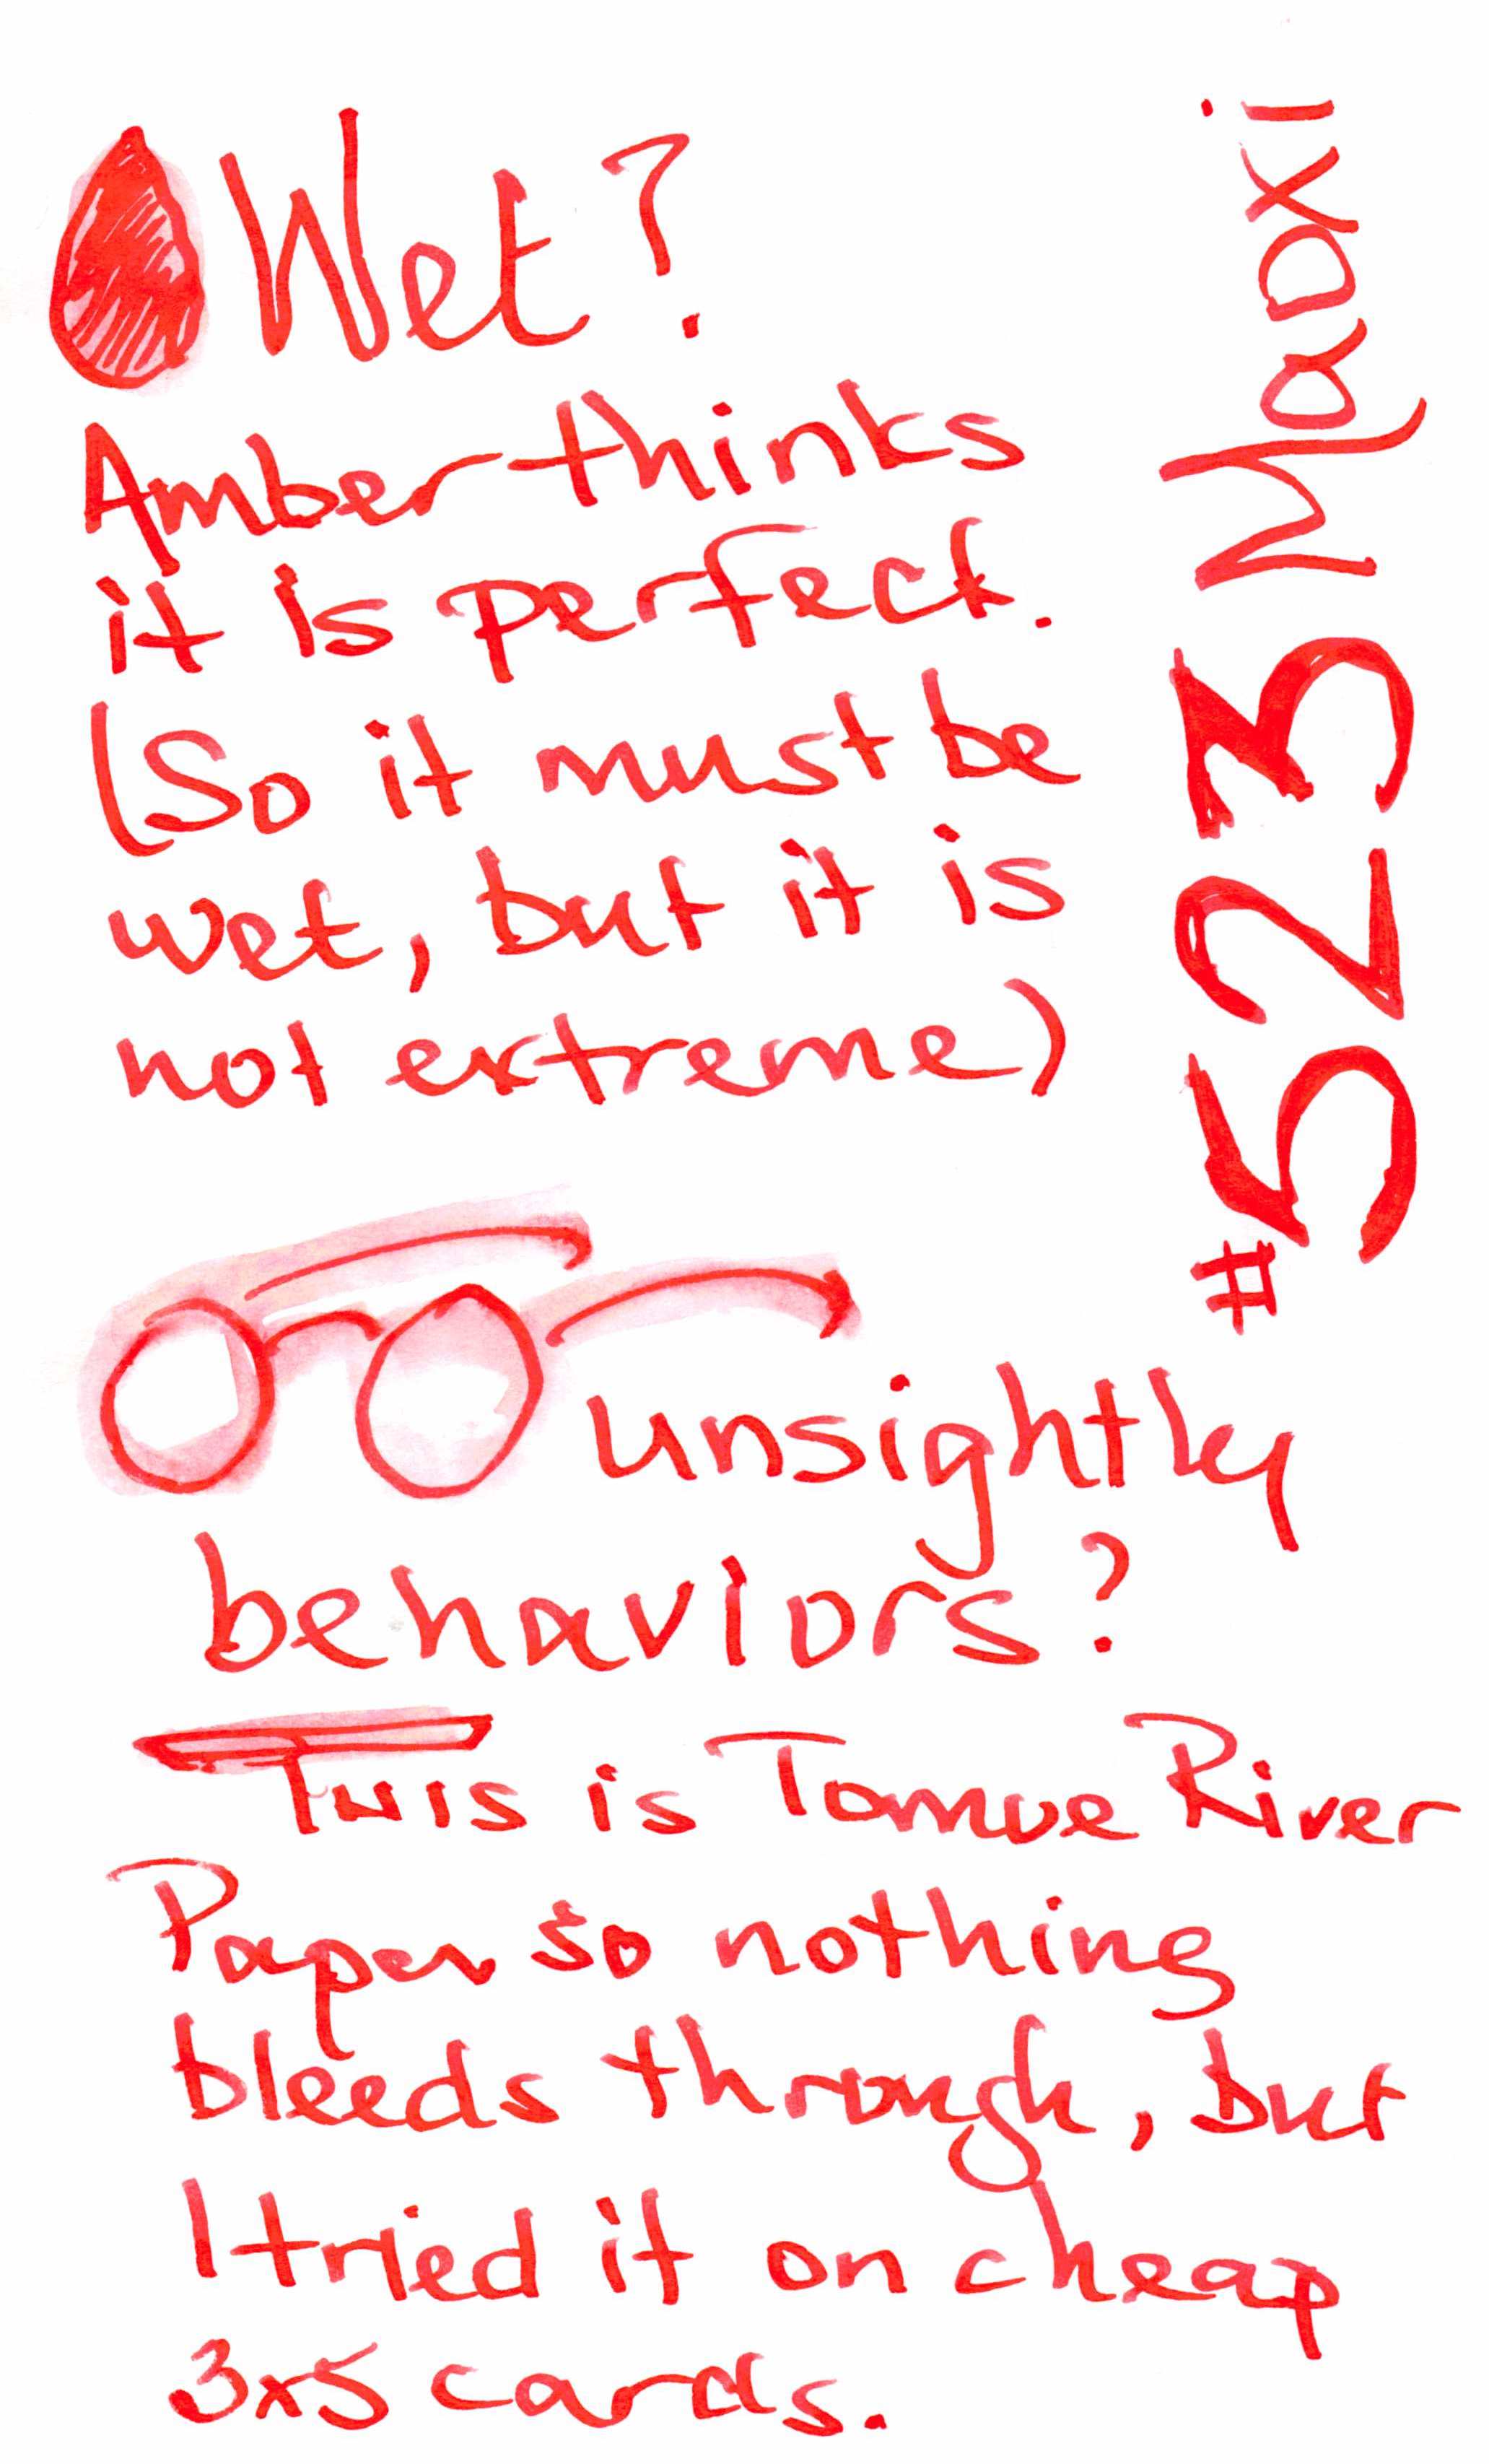 Wet?
Amber thinks
it is perfect.
(So it must be
wet, but it is
not extreme)
#523 Maaxi
unsightly
behaviors?
This is Tomoe River
Paper so nothing
bleeds through, but
I tried it on cheap
3x5 cards.